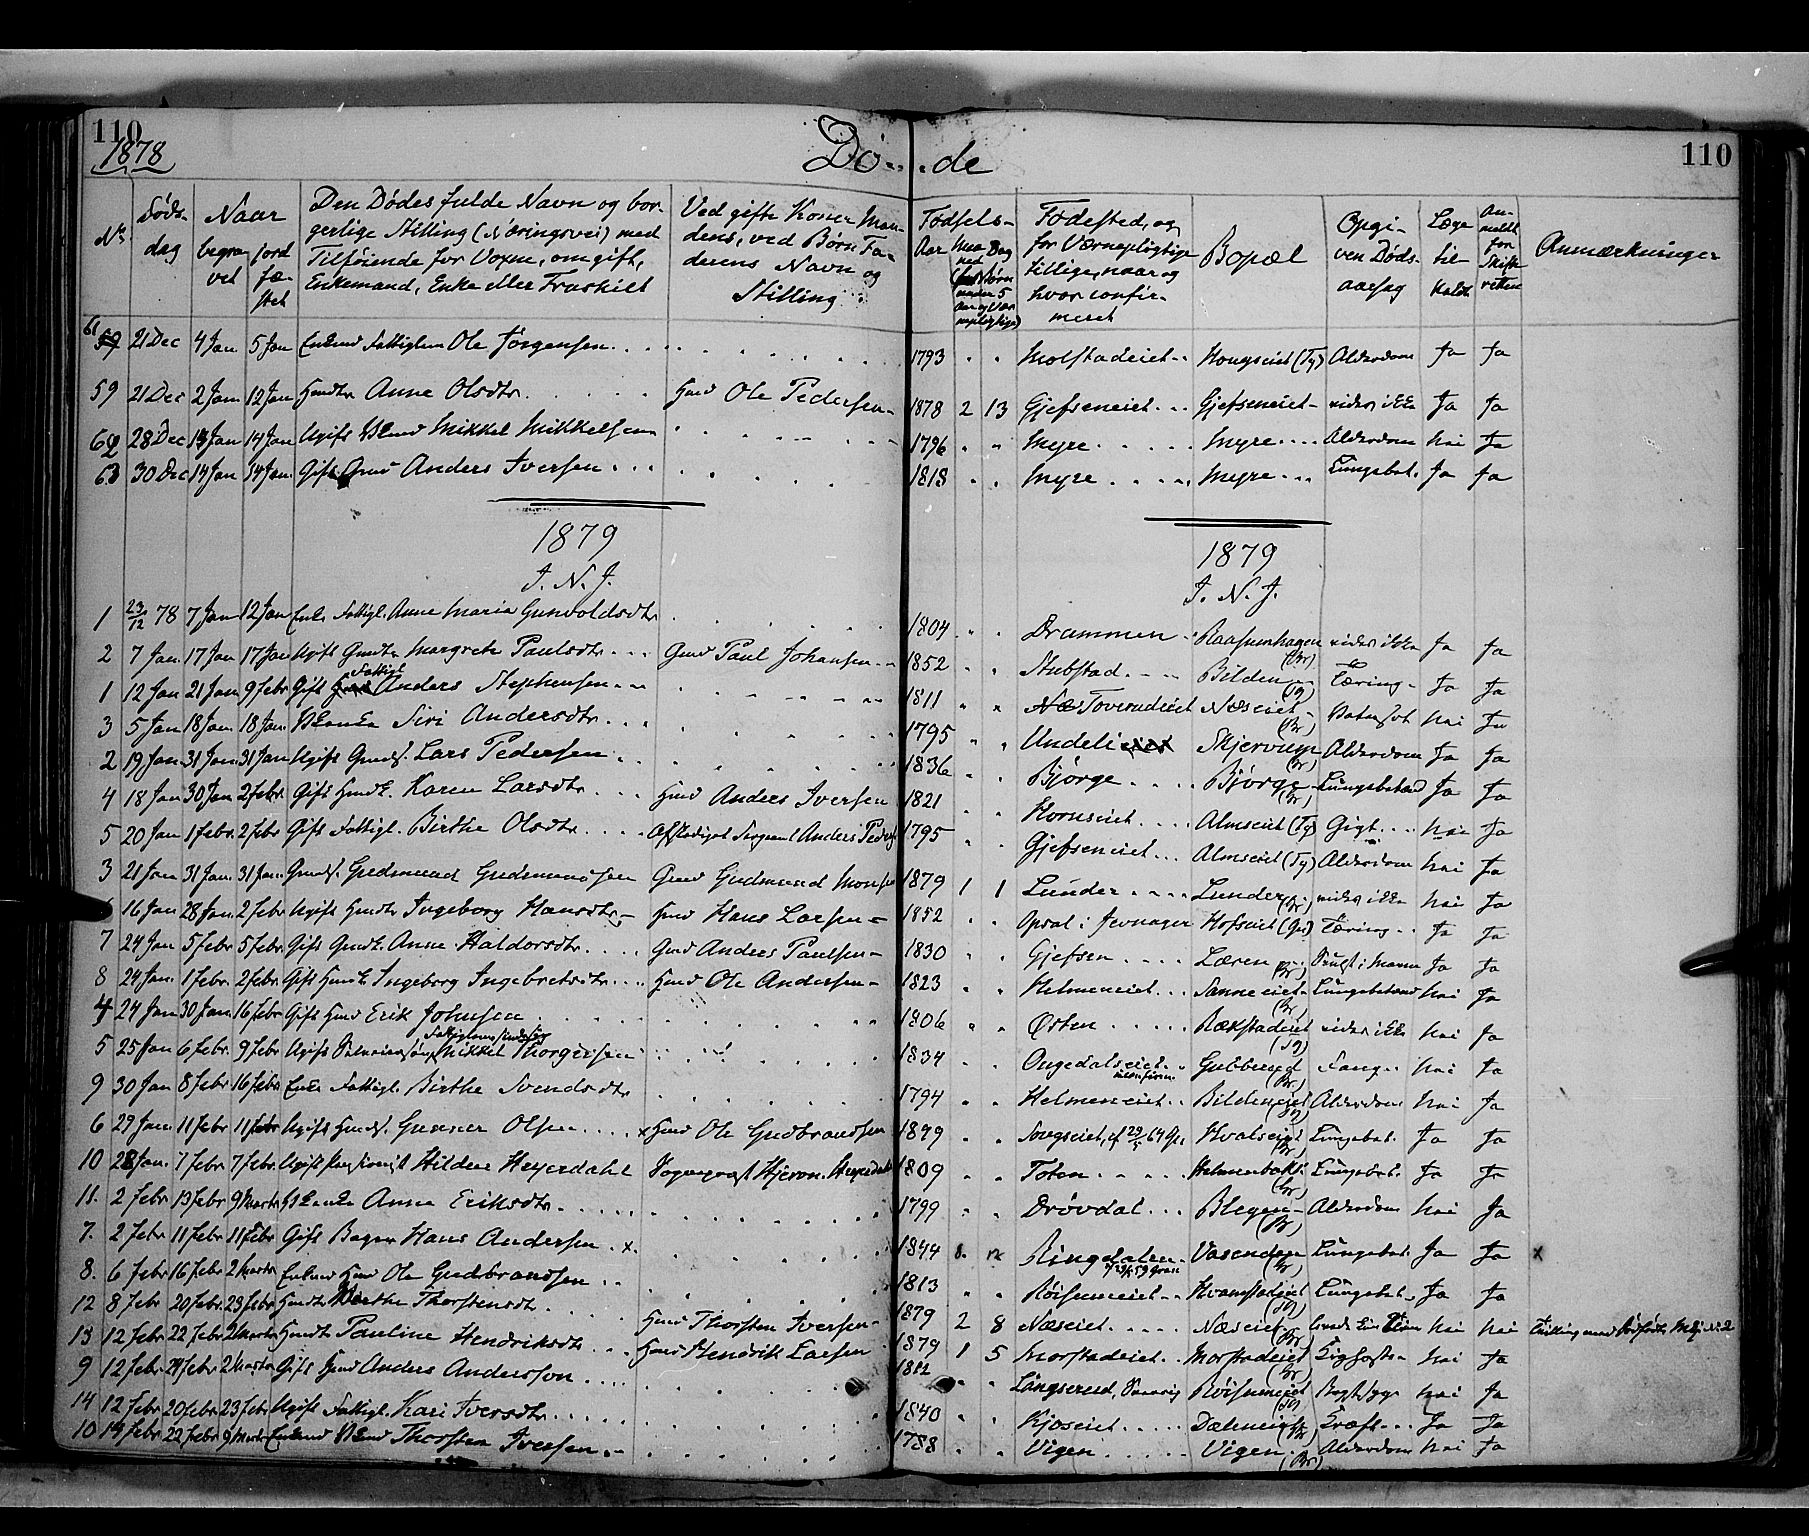 110 110
1878
Dø... .de
No. Døds-dag Naar begravet jordfæstet Den Dødes fulde Navn og borgerlige Stilling (Næringsvei) med Tilføiende for Voxne, om gift, Enkemand, Enke eller Fraskilt Ved gifte Koner Mandens, ved Børn Faderens Navn og Stilling Fødsels-Aar Maaned Dag Fødested, og for Værnepligtige tillige, naar og hvor confirmeret Bopæl Opgiven Dødsaarsag Læge tilkaldt Anmeldt for Skifteretten Anmærkninger
61 59 21 Dec 4 Jan 5 Jan Enkmd Fattiglem Ole Jørgensen 1793 Molstadeiet Hougseiet (Ty) Alderdom Ja Ja
59 21 Dec 2 Jan 12 Jan Hmdtr Anne Olsdtr. Hmd Ole Pedersen 1878 2 13 Gjefseneiet Gjefseneiet vides ikke Ja Ja
62 28 Dec 13 Jan 14 Jan Ugift Mikkel Mikkelsen 1796 Myre Myre Alderdom Nei Ja
63 30 Dec 14 Jan 14 Jan Gift Gmd Anders Iversen 1818 Myre Myre Lungebet. Ja Ja
1879 1879
I. N. J. I. N. J.
1 23/12 78 7 Jan 12 Jan Enke Fattigl. Anne Maria Gunvoldsdtr 1804 Drammen vides ikke Ja Ja
2 7 Jan 17 Jan 17 Jan Ugift Gmdtr Margrete Paulsdtr Gmd Paul Johansen 1852 Stubstad Bilden Tæring Ja Ja
1 12 Jan 21 Jan 9 Febr Gift Fattigl Anders Stephensen 1811 Næseiet Nei Ja
3 5 Jan 18 Jan 18 Jan Siri Andersdtr. 1795 Undeli Skjervum (Br) Alderdom Ja Ja
2 19 Jan 31 Jan 31 Jan Ugift Gmds. Lars Pedersen 1836 Bjørge Bjørge (Br) Lungebetænd Ja Ja
4 18 Jan 30 Jan 2 Febr. Gift Hmdk. Karen Larsdtr Hmd Anders Iversen 1821 Horneiet Almseiet (Ty) Gigt Nei Ja
5 20 Jan 1 Febr. 2 Febr Gift Fattigl. Birthe Olsdtr Afskediget Sergeant Anders Peders 1795 Gjefseneiet Almseiet (Ty) Alderdom Nei Ja
3 21 Jan 31 Jan. 31 Jan. Gmds. Gudmund Gudmundsen Gmd Gudmund Monsen 1879 1 1 Lunder Lunder (Br) vides ikke Nei Ja
16 Jan 28 Jan. 2 Febr Ugift Hmdtr Ingeborg Hansdtr Hmd Hans Larsen 1852 Opdal i Jevnager Hofseiet Tæring Ja Ja
7 24 Jan 5 Febr 5 Febr Gift Gmdk. Anne Haldorsdtr Gmd Anders Paulsen 1830 Gjefsen Læren (Br) Ja Ja
8 24 Jan. 1 Febr. 2 Febr Gift Hmdk Ingeborg Ingebretsdtr Hmd Ole Andersen 1823 Helmeneiet Sanneeiet (Br) Lungebetænd Nei Ja
4 24 Jan 30 Jan. 16 Febr Gift Hmd Erik Johnsen 1806 Østen Rækstadeiet (Ty) vides ikke Nei Ja
5 25 Jan 6 Febr. 9 Febr Ugift Mikkel Thorgersen 1834 Ongedalseiet Gulbrud (Br) Nei Ja
9 30 Jan 8 Febr 16 Febr Enke Fattigl. Birthe Svendsdtr 1794 Helmeneiet Bildeneiet (Ty) Alderdom Nei Ja
6 29 Jan 11 Febr 11 Febr Ugift Hmds. Gunner Olsen x Hmd Ole Gudbrandsen 1849 Hvalseiet (Br) Lungebet. Ja Ja
10 28 Jan. 7 Febr 7 Febr. Ugift Hilder Heyerdahl Sogneprest Hjeron. Heyerdahl 1809 Toten (Br) Lungebet. Ja Ja
11. 2 Febr 13 Febr 9 Marts Anne Eriksdtr. 1799 Drøvdal Blegen (Br) Alderdom Nei Ja
7. 2 Febr 11 Febr 11 Febr Gift Bager Hans Andersen x. 1844 8. Ringdalen Vasenden (Br) Lungebet. Ja Ja x
8. 6 Febr 16 Febr 2 Marts Enkmd Hmd Ole Gudbrandsen 1813 Røisumeiet Hvamstadeiet (Ty) Lungebet. Ja Ja
12 8 Febr 20 Febr. 23 Febr Hmdtr Birthe Thorstensdtr. Hmd Thorsten Iversen 1879 2 8 Næseiet Næseiet (Br) Nei Nei Tvilling med Dødfødte
13 12 Febr 22 Febr 2 Marts Hmdtr Pauline Hendriksdtr Hmd Hendrik Larsen 1879 1 5 Morstadeiet Morstadeiet (Br) Kighoste Nei Ja
9 12 Febr 24 Febr 2 Marts Gift Hmd Anders Anderssøn 1812 Langserud, Røisumeiet (Ty) Nei Ja
14 12 Febr 20 Febr 23 Febr Ugift Fattigl. Kari Iversdtr 1840 Kjoseiet (Br) Kræft Ja Ja
10 14 Febr 22 Febr 9 Marts Enkmd Thorsten Iversen 1788 Vigen Vigen (Br) Alderdom Nei Ja